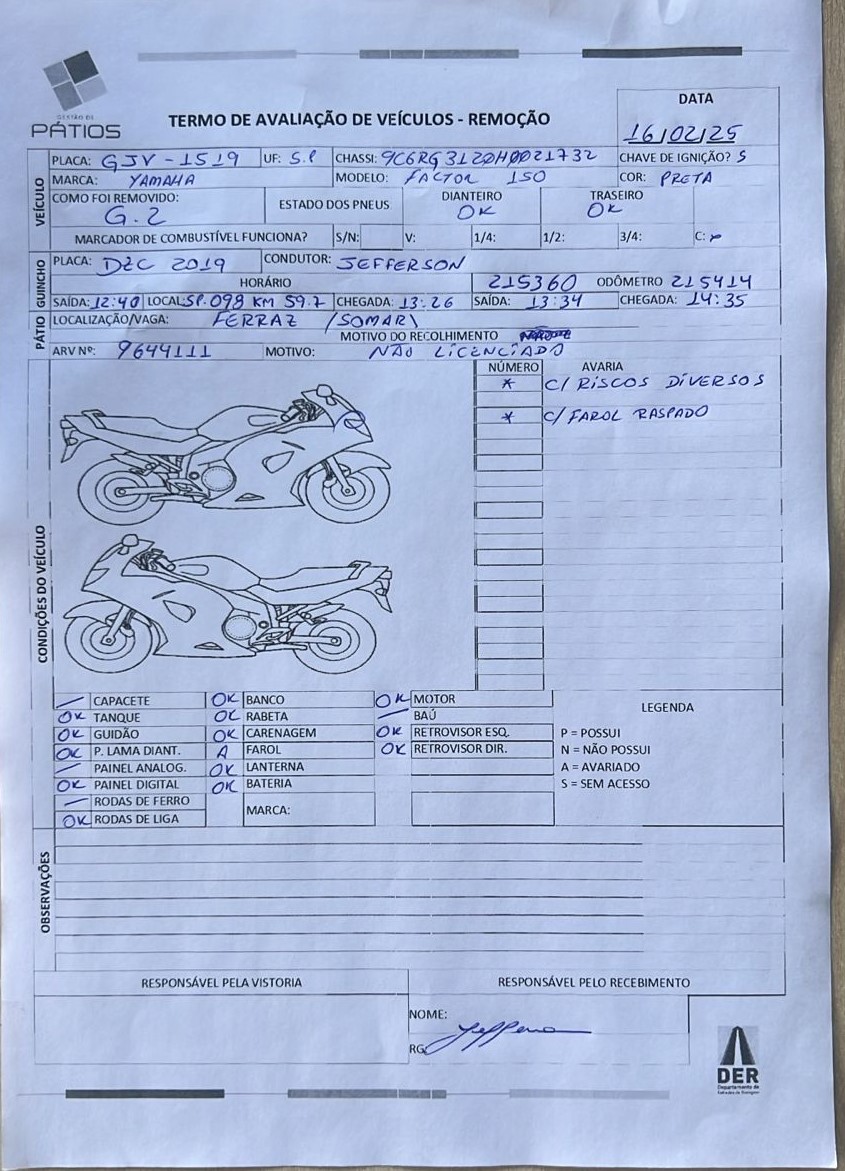 GESTÃO DE
PÁTIOS
TERMO DE AVALIAÇÃO DE VEÍCULOS - REMOÇÃO
DATA
16/02/25
VEÍCULO
PLACA: GJV - 1519 UF: S.P CHASSI: 9C6RG3120H0021732 CHAVE DE IGNIÇÃO? S
MARCA: YAMAHA MODELO: FACTOR 150 COR: PRETA
COMO FOI REMOVIDO: G.2 ESTADO DOS PNEUS DIANTEIRO OK TRASEIRO OK
MARCADOR DE COMBUSTÍVEL FUNCIONA? S/N: V: 1/4: 1/2: 3/4: C:
GUINCHO
PLACA: DZC 2019 CONDUTOR: JEFFERSON
HORÁRIO 215360 ODÔMETRO 215414
SAÍDA: 12:40 LOCAL: SP.098 KM 59.7 CHEGADA: 13:26 SAÍDA: 13:34 CHEGADA: 14:35
PÁTIO
LOCALIZAÇÃO/VAGA: FERRAZ (SOMAR)
MOTIVO DO RECOLHIMENTO
ARV Nº: 9644111 MOTIVO: NÃO LICENCIADO
CONDIÇÕES DO VEÍCULO
NÚMERO AVARIA
* C/ RISCOS DIVERSOS
* C/ FAROL RASPADO
— CAPACETE OK BANCO OK MOTOR
OK TANQUE OK RABETA — BAÚ
OK GUIDÃO OK CARENAGEM OK RETROVISOR ESQ.
OK P. LAMA DIANT. A FAROL OK RETROVISOR DIR.
— PAINEL ANALOG. OK LANTERNA
OK PAINEL DIGITAL OK BATERIA
— RODAS DE FERRO MARCA:
OK RODAS DE LIGA
LEGENDA
P = POSSUI
N = NÃO POSSUI
A = AVARIADO
S = SEM ACESSO
OBSERVAÇÕES
RESPONSÁVEL PELA VISTORIA RESPONSÁVEL PELO RECEBIMENTO
NOME:
RG:
DER
Departamento de
Estradas de Rodagem